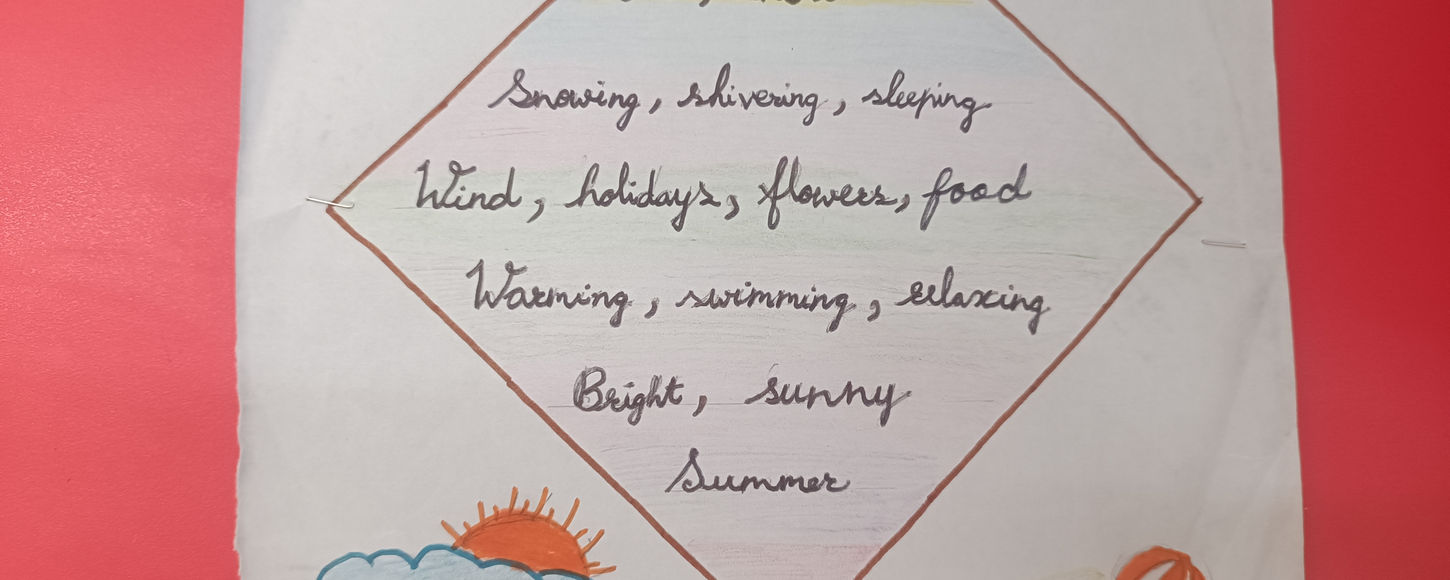 Snowing, shivering, sleeping
Wind, holidays, flowers, food
Warming, swimming, relaxing
Bright, sunny
Summer